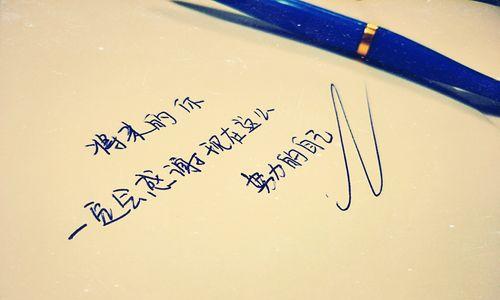 将来的你
一定会感谢现在这么
努力的自己